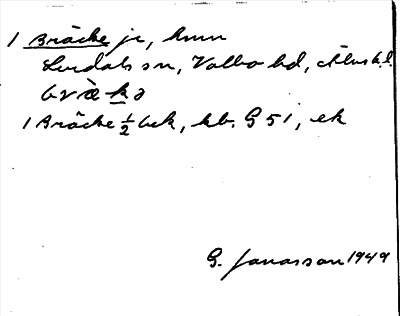 1 Bräcke jr, hmn
Lerdals sn, Valbo hd, Älvsb.l.
bvàkə
1 Bräcke ½ bek, kb. G 51, ek
G. Jonasson 1949